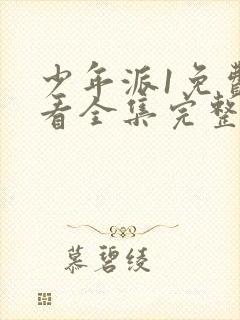 少年派1免费
看全集完整
慕碧绫